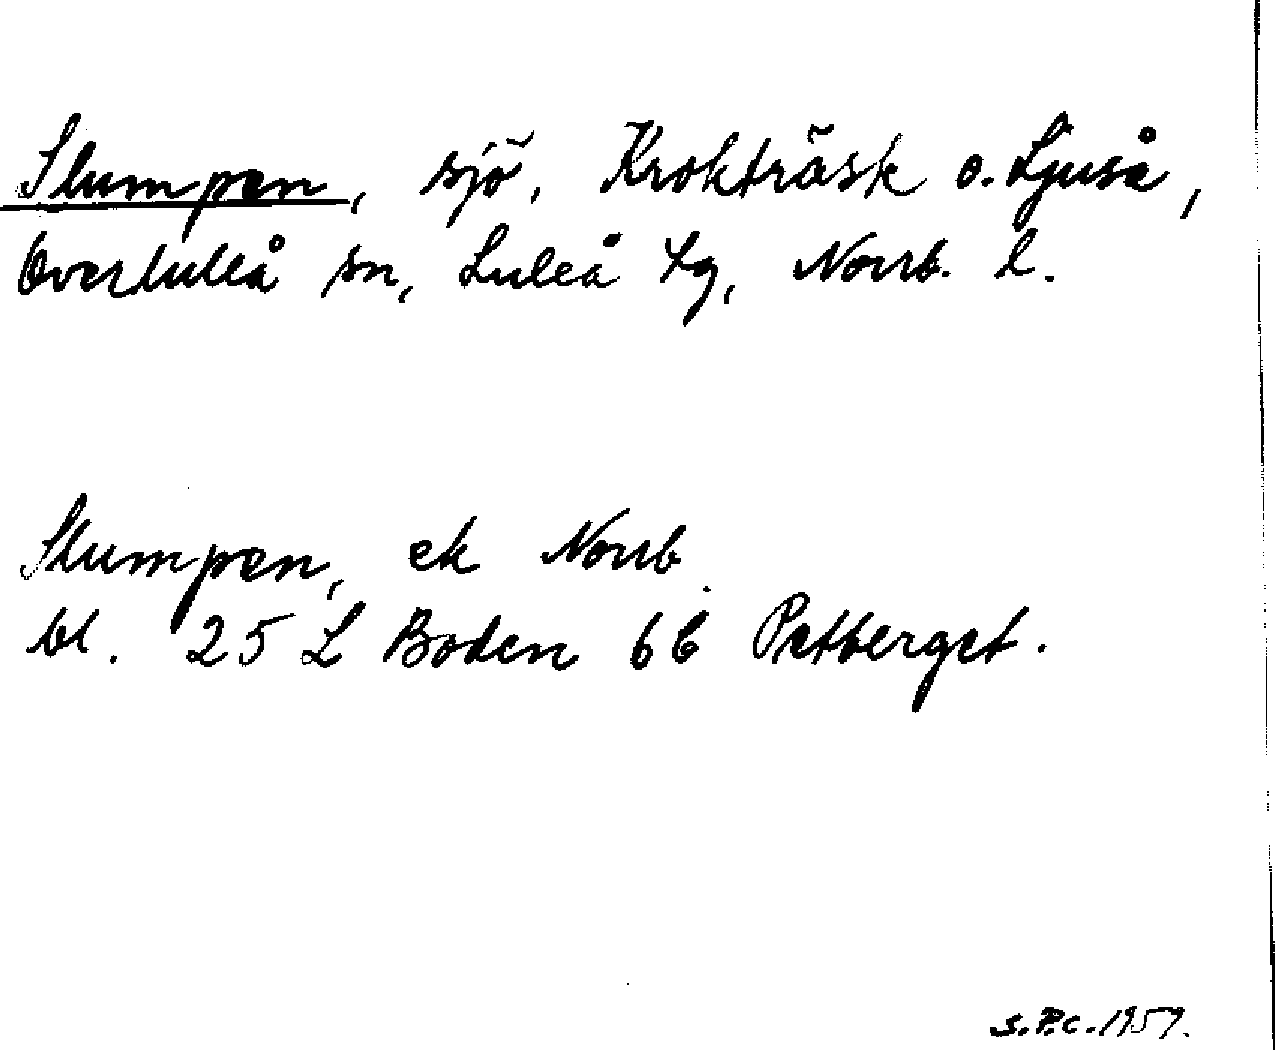 Slumpen, sjö, Krokträsk o. Ljuså,
Överluleå sn, Luleå tg, Norrb. l.
Slumpen, ek Norrb.
bl. 25 L Boden 6b Petberget.
S.P.C. 1959.